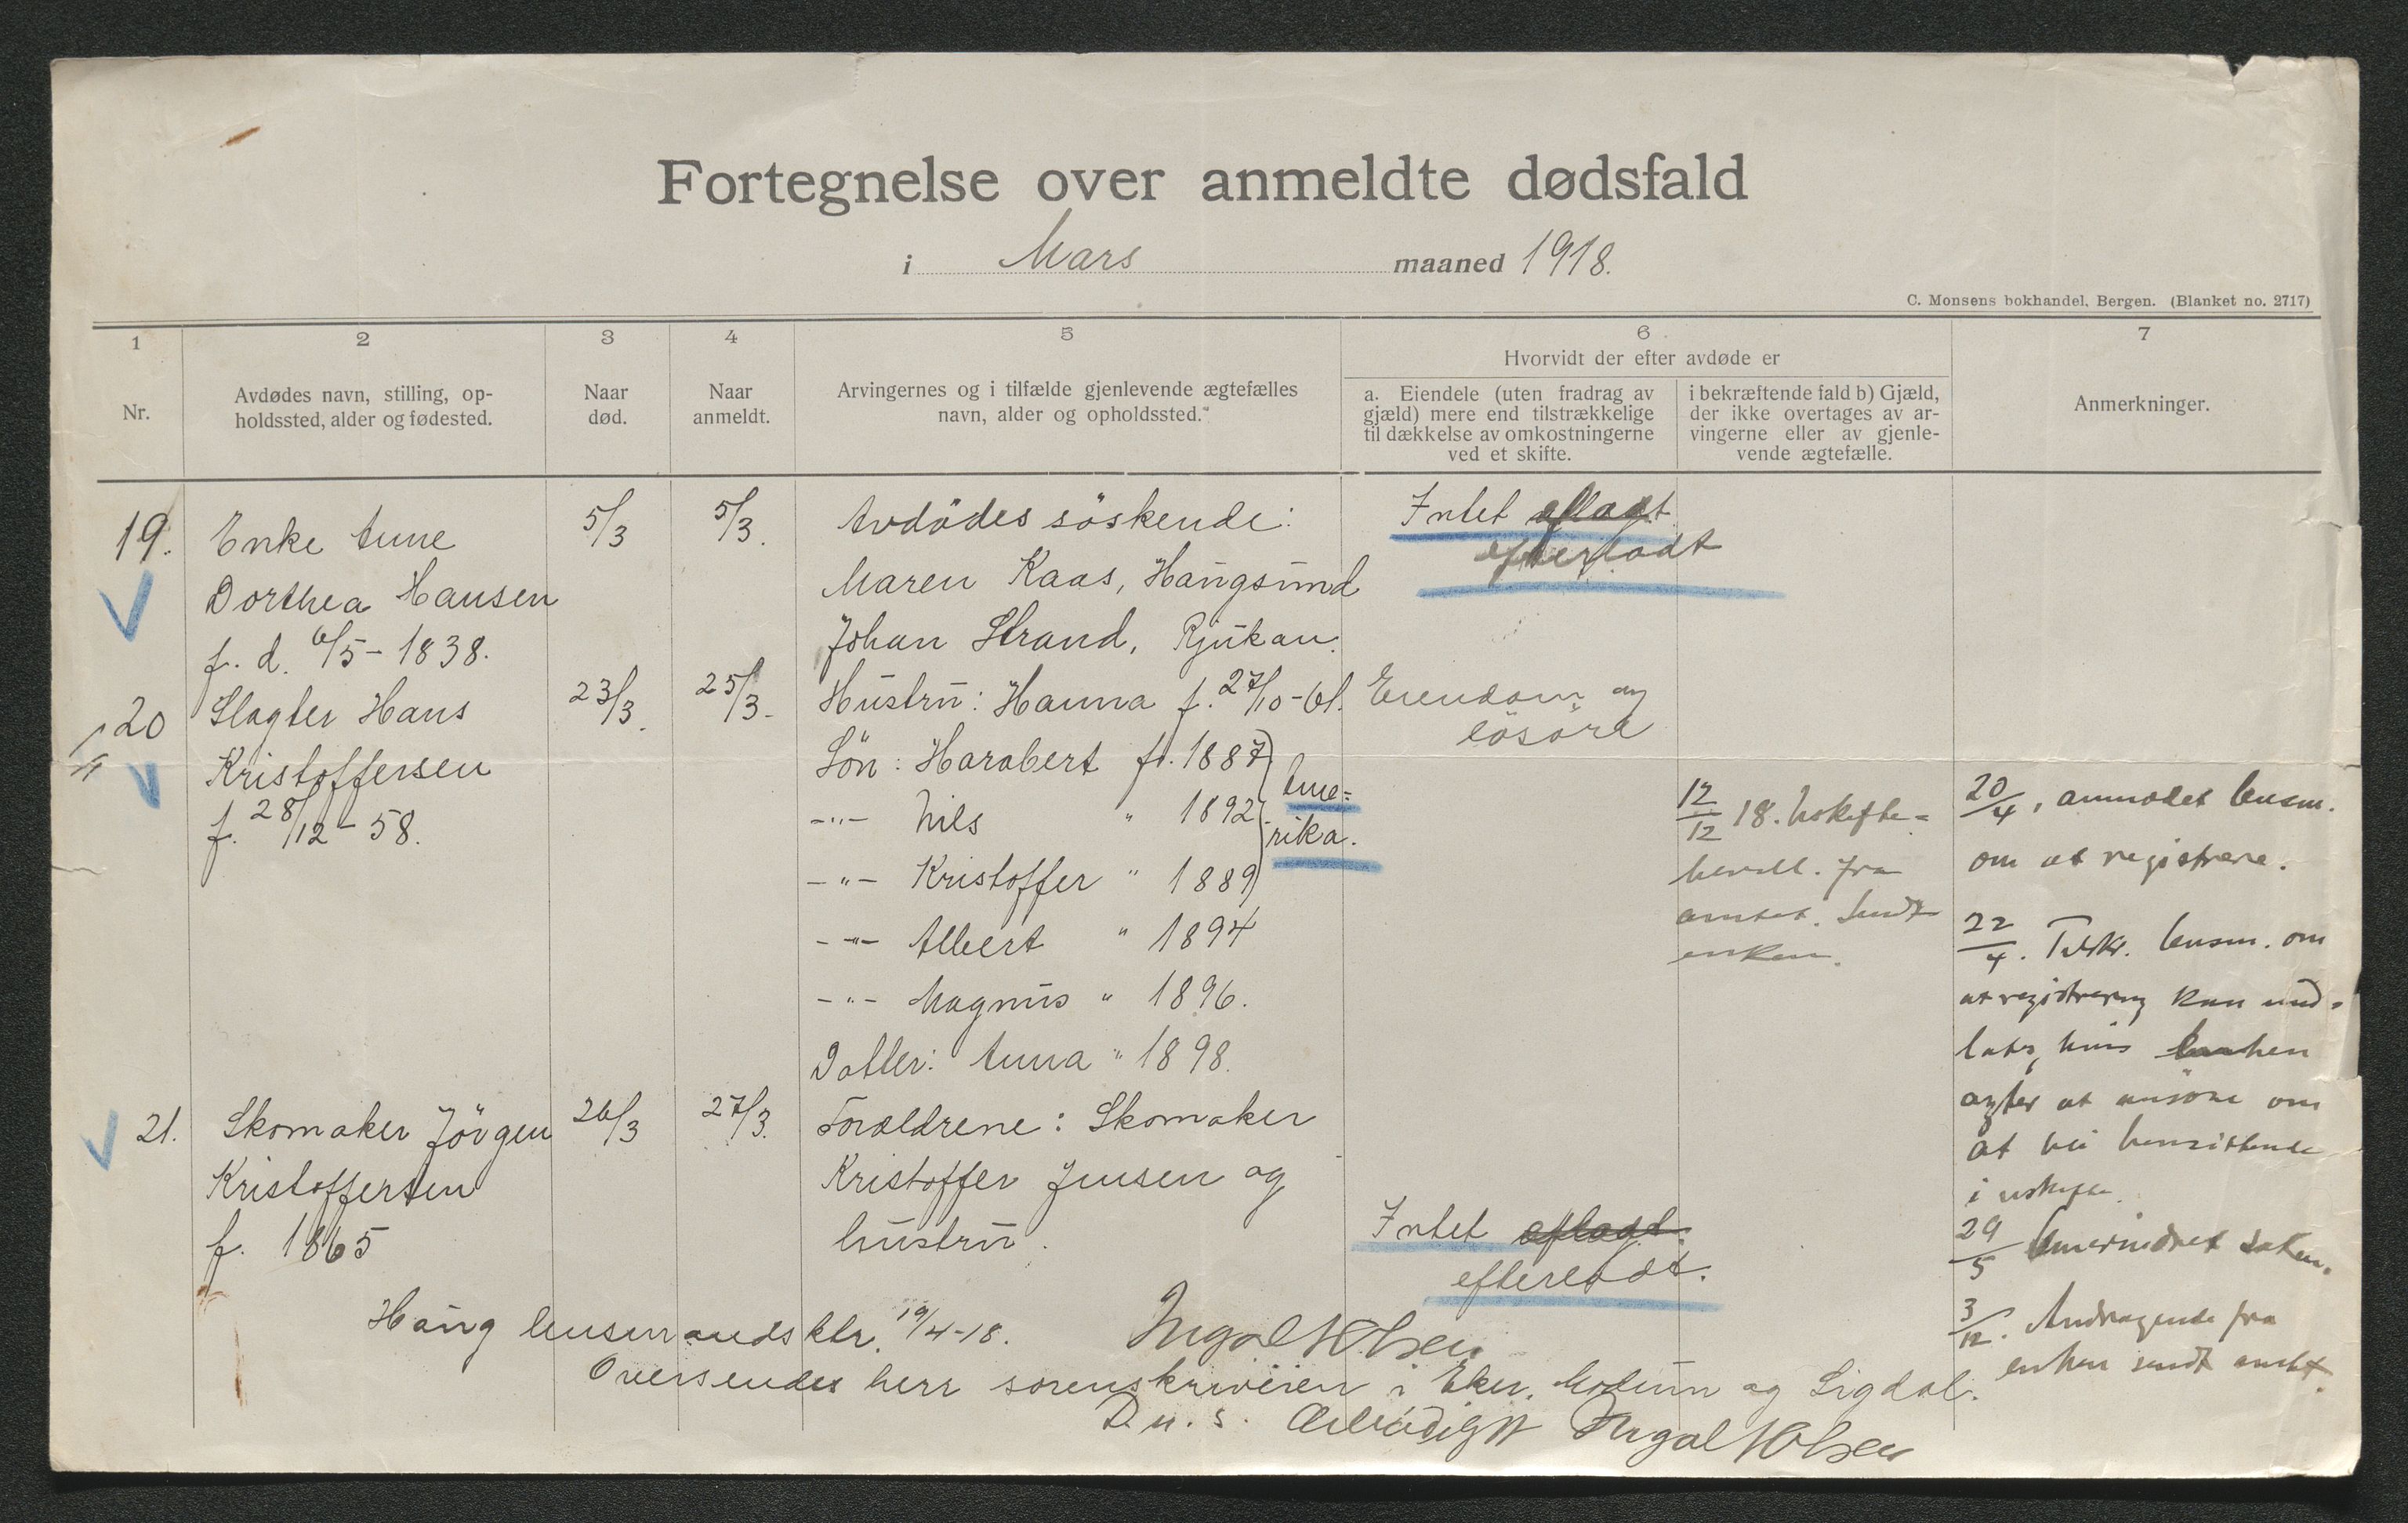 Fortegnelse over anmeldte dødsfald
i Mars maaned 1918.
C. Monsens bokhandel, Bergen. (Blanket no. 2717)
1
Nr.
2
Avdødes navn, stilling, op-
holdssted, alder og fødested.
3
Naar
død.
4
Naar
anmeldt.
5
Arvingernes og i tilfælde gjenlevende ægtefælles
navn, alder og opholdssted.
6
Hvorvidt der efter avdøde er
a. Eiendele (uten fradrag av
gjæld) mere end tilstrækkelige
til dækkelse av omkostningerne
ved et skifte.
i bekræftende fald b) Gjæld,
der ikke overtages av ar-
vingerne eller av gjenle-
vende ægtefælle.
7
Anmerkninger.
19.
Enke Anne
Dorthea Hansen
f. d. 6/5 - 1838.
5/3
5/3.
Avdödes söskende:
Maren Kaas, Haugsund
Johan Strand, Rjukan.
Intet aflagt
efterladt
20
Slagter Hans
Kristoffersen
f. 28/12 - 58.
23/3.
25/3.
Hustru: Hanna f. 27/10 - 61.
Sön: Harabert f. 1887
-"- Nils " 1892
-"- Kristoffer " 1889
Ame=
rika.
-"- Albert " 1894
-"- Magnus " 1896.
Datter: Anna " 1898.
Eiendom og
lösöre
12/12 18. Uskifte=
bevill. fra
amtet. Sendt
enken.
20/4, anmodet lensm.
om at registrere.
22/4. Tilskr. lensm. om
at registrering kan und=
lates, hvis enken
agter at ansöke om
at bli hensittende
i uskifte.
29/5 saken.
3/12. Andragende fra
enken sendt amtet.
21.
Skomaker Jörgen
Kristoffersen
f. 1865
26/3
27/3.
Forældrene: Skomaker
Kristoffer Jensen og
hustru.
Intet aflagt.
efterladt.
Haug lensmandsktr. 19/4-18.
Ingval Olsen
Oversendes herr sorenskriveren i Eker, Modum og Sigdal.
D. u. s. Ærbödigst Ingval Olsen